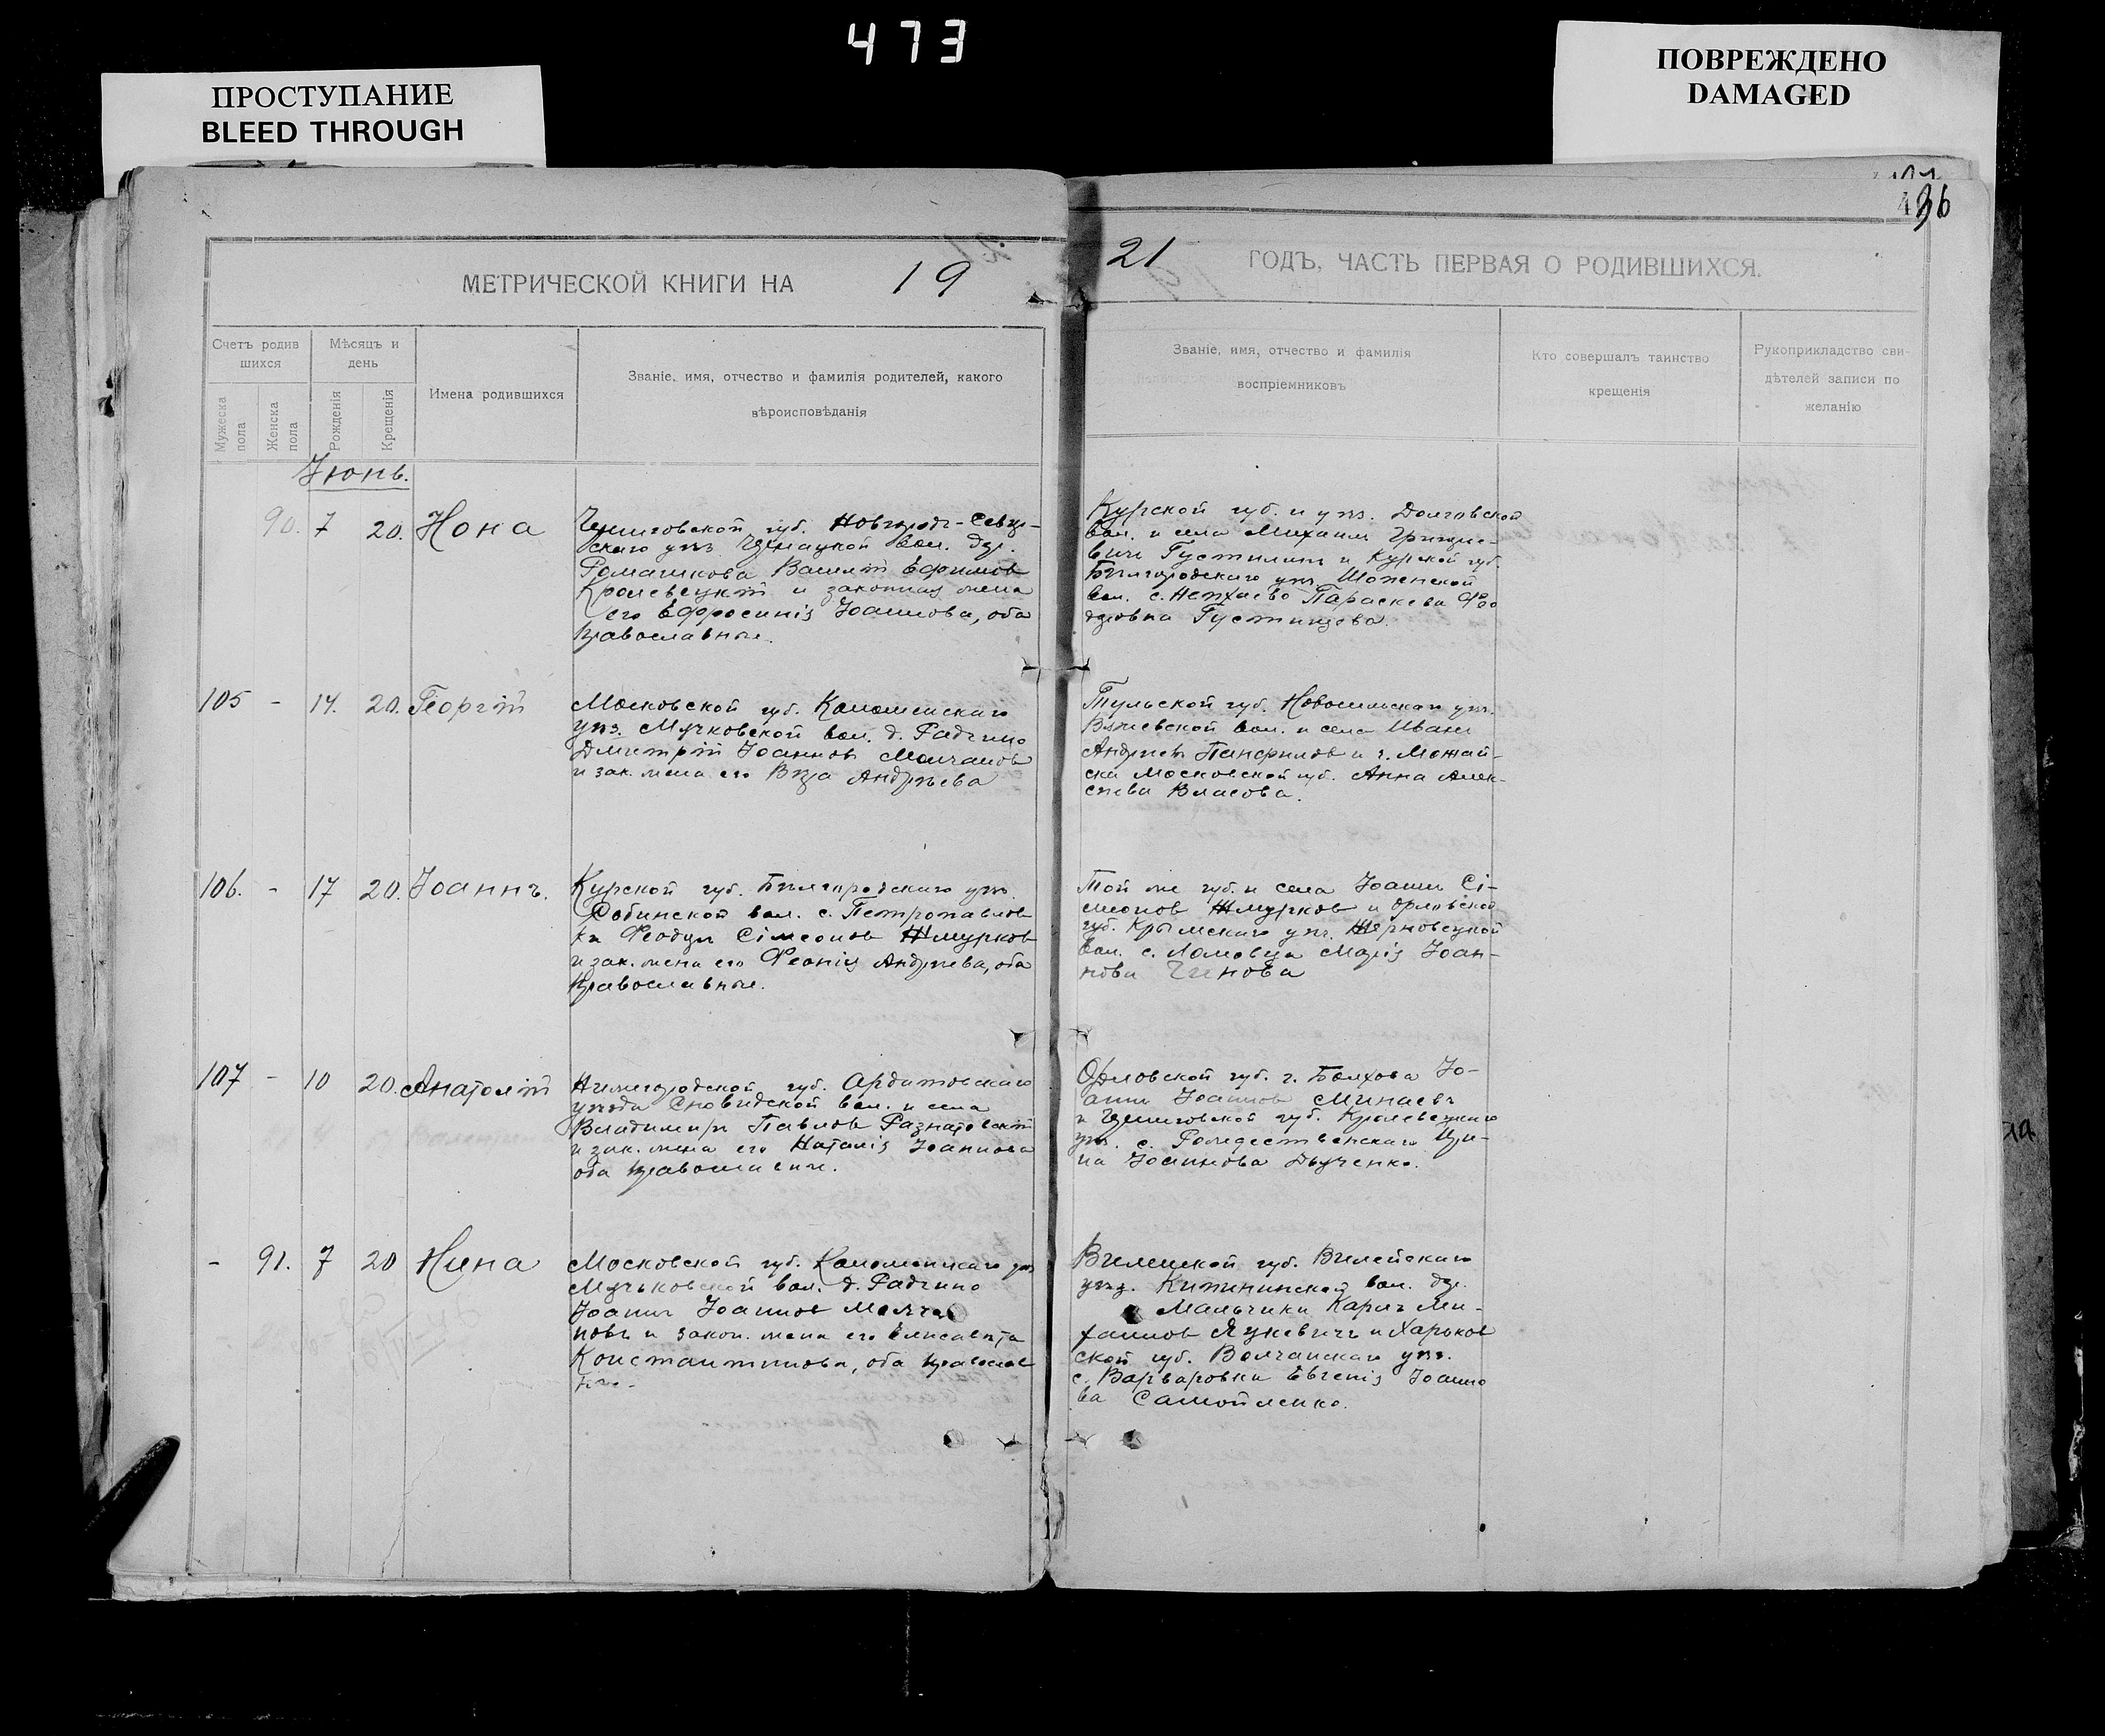 473
ПРОСТУПАНИЕ
BLEED THROUGH
ПОВРЕЖДЕНО
DAMAGED
МЕТРИЧЕСКОЙ КНИГИ НА 19
21 ГОДЪ, ЧАСТЬ ПЕРВАЯ О РОДИВШИХСЯ.
Счетъ родив
шихся
Мужеска
пола
Женска
пола
Мѣсяцъ и
день
Рожденія
Крещенія
Имена родившихся
Званіе, имя, отчество и фамилія родителей, какого
вѣроисповѣданія
Званіе, имя, отчество и фамилія
воспріемниковъ
Кто совершалъ таинство
крещенія
Рукоприкладство сви-
дѣтелей записи по
желанію
Іюнь.
90. 7 20. Нона
Черниговской губ. Новгородъ-Сѣвер-
скаго уѣз. вол. дер.
Ромашкова Василій Ефимов
Кролевецкій и законная жена
его Ефросинія Іоаннова, оба
православные.
Курской губ. и уѣз. Долговской
вол. и села Михаилъ Григорье-
вичъ и Курской губ.
Бѣлгородскаго уѣз. Шопенской
вол. с. Нехаево Параскева Фео
доровна
105 - 14. 20. Георгій
Московской губ. Коломенскаго
уѣз. Мячковской вол. д. Радчино
Дмитрій Іоаннов Молчанов
и зак. жена его Вѣра Андрѣева
Тульской губ. Новосильскаго уѣз.
Вяжевской вол. и села Иванъ
Андреевъ Панфилов и г. Можай-
ска Московской губ. Анна Алек-
сѣева Власова.
106. - 17 20. Іоаннъ.
Курской губ. Бѣлгородскаго уѣз.
Сабинской вол. с. Петропавлов
ка Феодоръ Сімеонов Жмурков
и зак. жена его Феонія Андрѣева, оба
православные.
Той же губ. и села Іоаннъ Сі-
меонов Жмурков и Орловской
губ. Крымскаго уѣз.
вол. с. Ломовца Марія Іоан-
нова
107 - 10 20. Анатолій
Нижегородской губ. Ардатовскаго
уѣзда Сновидской вол. и села
Владиміръ Павлов
и зак. жена его Наталія Іоаннова
оба православные.
Орловской губ. г. Болхова Іо-
аннъ Іоаннов Минаевъ
и Черниговской губ. Кролевецкаго
уѣз. с. Рождественскаго Ири-
на Іоаннова Дьяченко.
- 91. 7 20 Нина
Московской губ. Коломенскаго уѣз
Мячьковской вол. д. Радчино
Іоаннъ Іоаннов Молча
новъ и закон. жена его Елисавета
Константинова, оба православ
ные.
Виленской губ. Вилейскаго
уѣзд. вол. дер.
Мальчики Карлъ Ми-
хаилов Яцкевичъ и Харьков
ской губ. Волчанскаго уѣз.
с. Варваровки Евгенія Іоанно
ва Самойленко.